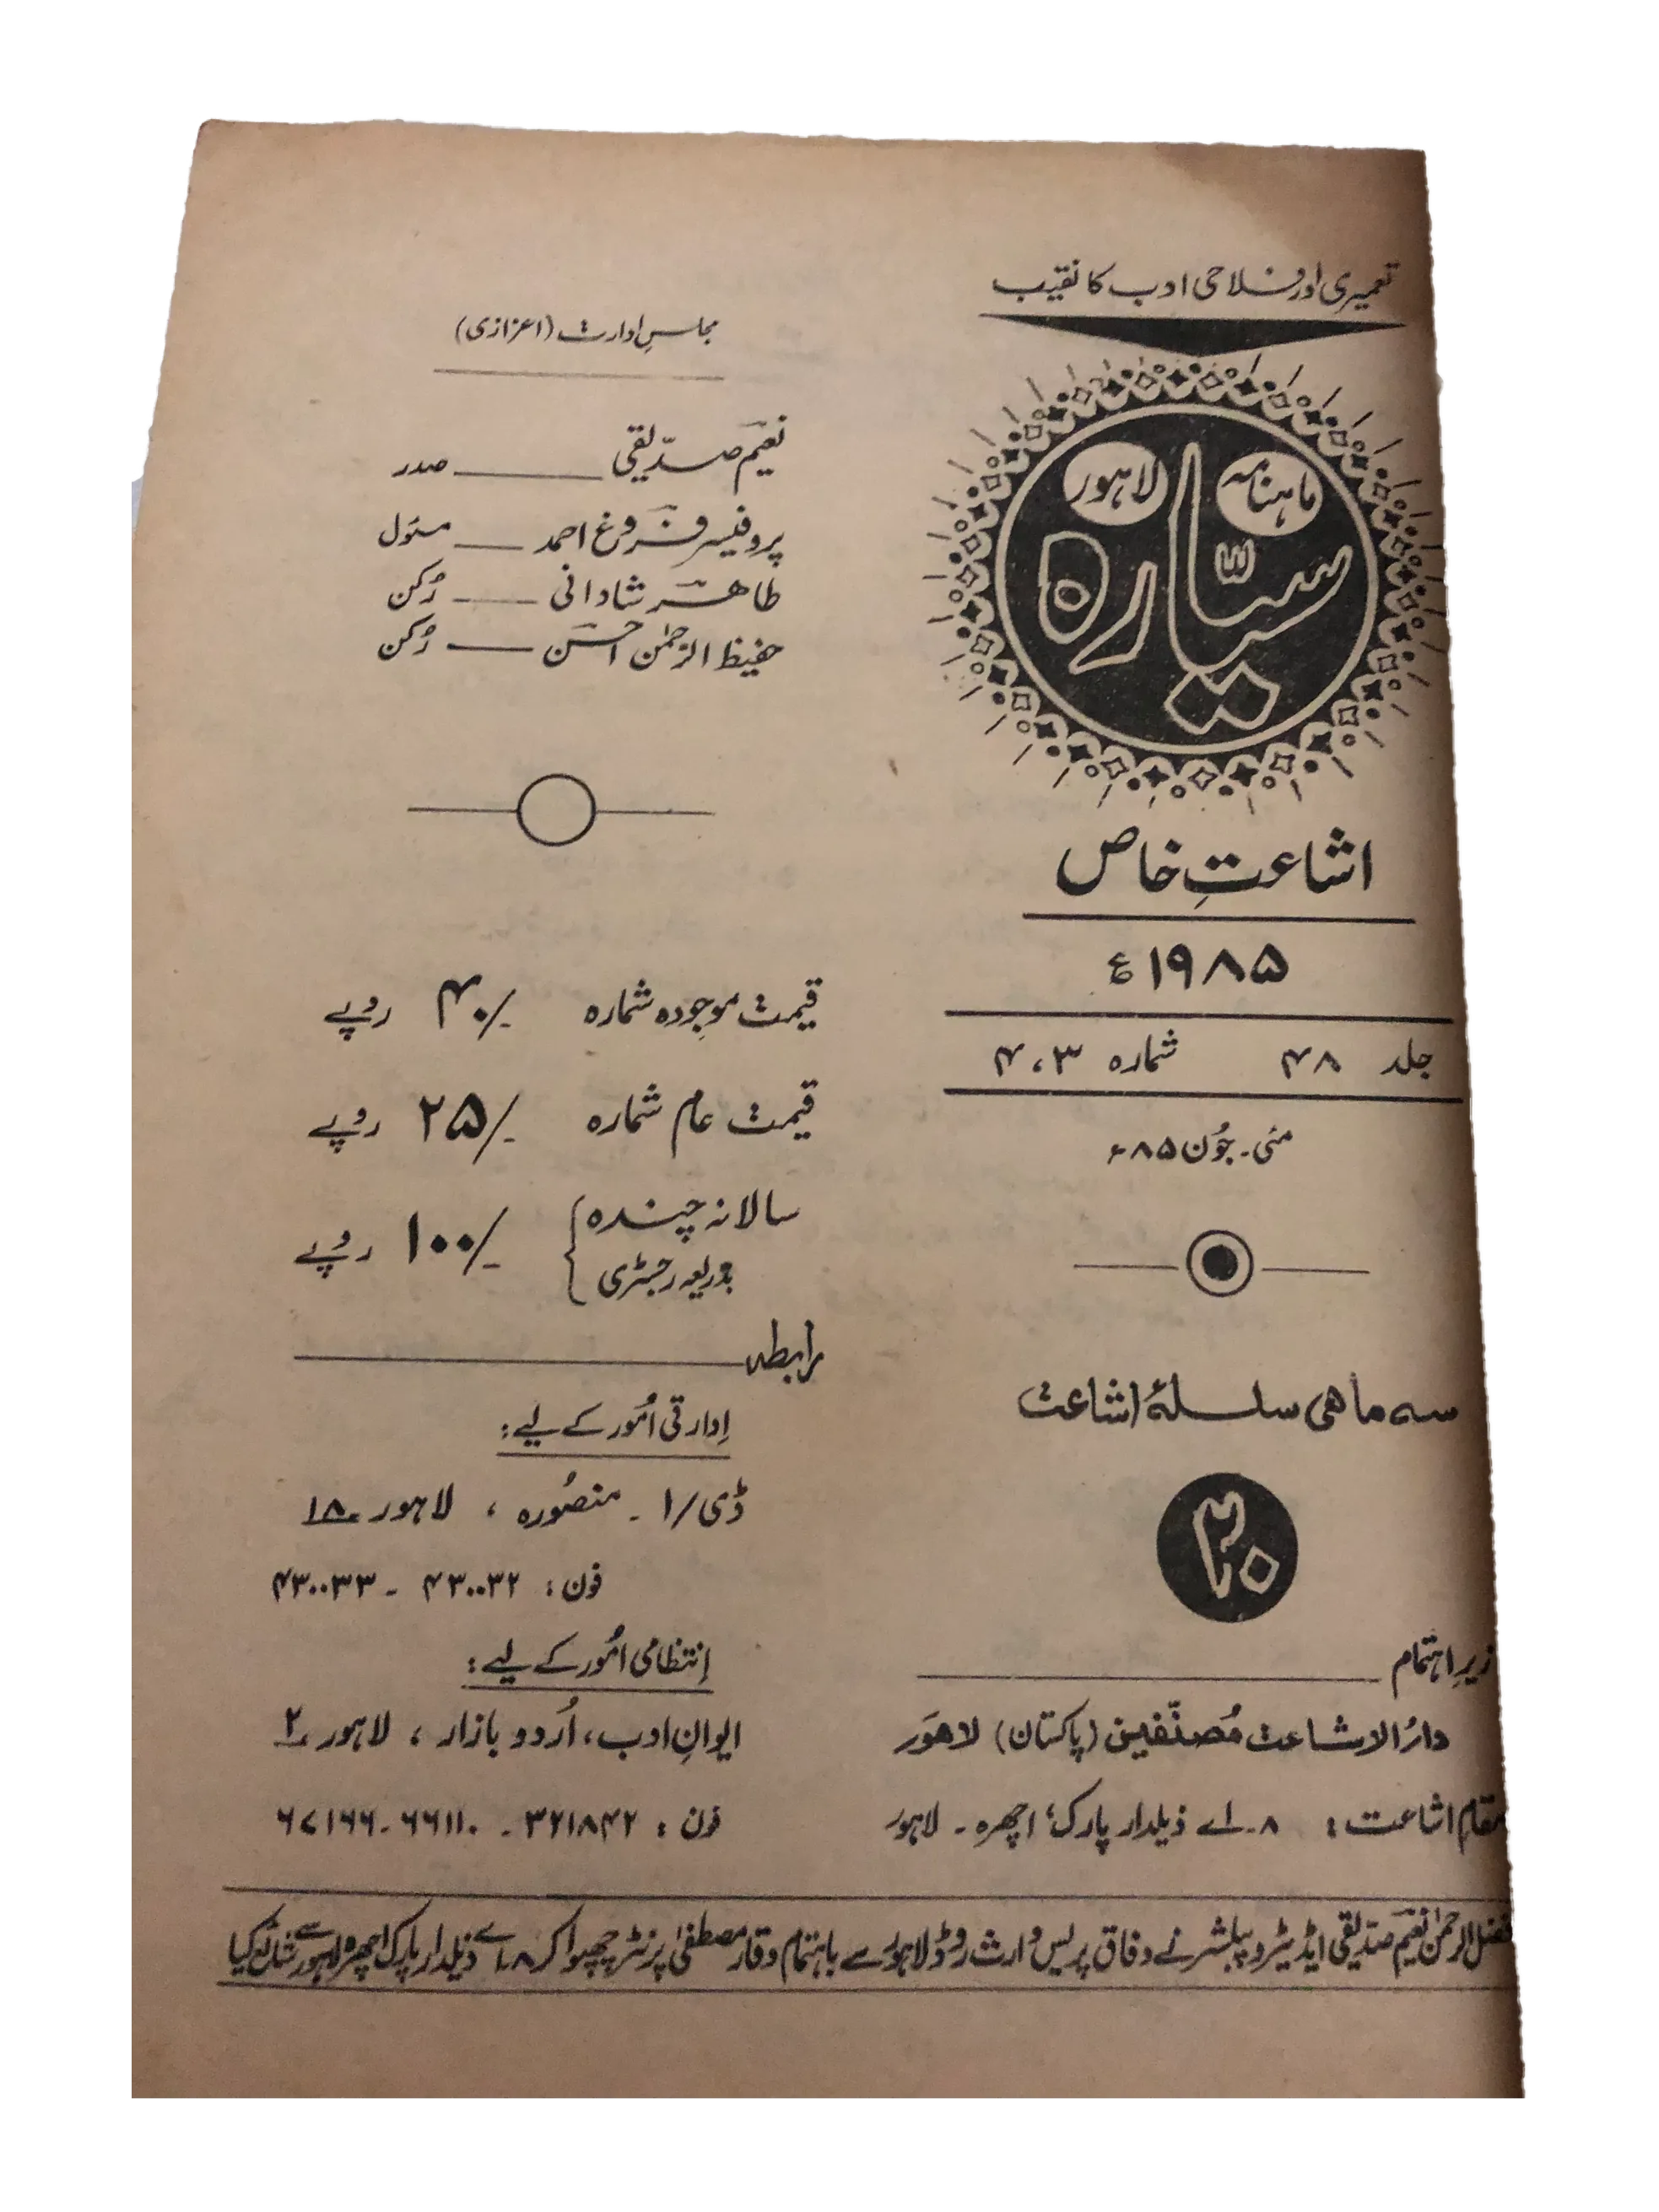 تعمیری اور فلاحی ادب کا نقیب
ماہنامہ
لاہور
سیّارہ
اشاعتِ خاص
۱۹۸۵ء
جلد ۴۸ شمارہ ۳، ۴
مئی۔ جُون ۸۵ء
سہ ماہی سلسلۂ اشاعت
۲۰
زیرِ اہتمام
دارُ الاشاعت مُصنّفین (پاکستان) لاہور
مقامِ اشاعت: ۸۔اے ذیلدار پارک، اچھرہ۔ لاہور
مجلسِ ادارت (اعزازی)
نعیم صدّیقی ــــ صدر
پروفیسر فروغ احمد ــــ مسئول
طاہر شادانی ــــ رُکن
حفیظ الرحمٰن احسن ــــ رُکن
قیمت موجودہ شمارہ ۴۰/- روپے
قیمت عام شمارہ ۲۵/- روپے
سالانہ چندہ
بذریعہ رجسٹری
۱۰۰/- روپے
رابطہ
اِدارتی اُمُور کے لیے:
ڈی/۱ ۔ منصُورہ ، لاہور ۱۸
فون: ۴۳۰۰۳۲ ۔ ۴۳۰۰۳۳
اِنتظامی امُور کے لیے:
ایوانِ ادب، اُردو بازار ، لاہور ۲
فون: ۳۲۱۸۴۲ ۔ ۶۶۱۱۰ ۔ ۶۷۱۶۶
فضل الرحمٰن نعیم صدیقی ایڈیٹر و پبلشر نے وفاق پریس وارث روڈ لاہور سے باہتمام وقار مصطفیٰ پرنٹر چھپوا کر ۸۔اے ذیلدار پارک اچھرہ لاہور سے شائع کیا